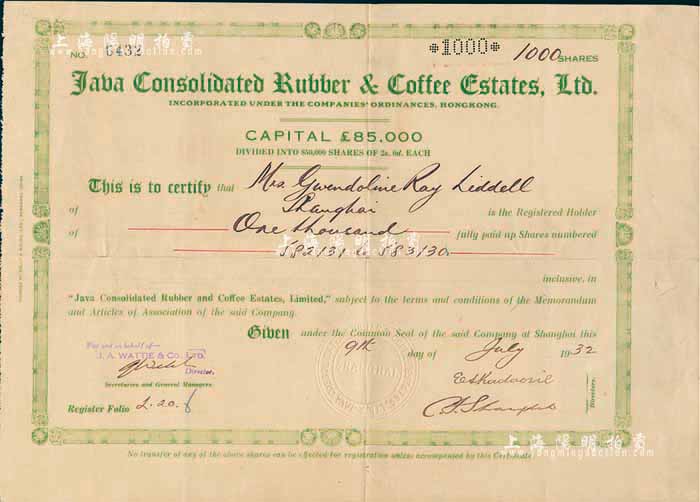 上海陽明拍賣
www.yangmingauction.com
NO. 6432
*1000*
1000 SHARES
Java Consolidated Rubber & Coffee Estates, Ltd.
INCORPORATED UNDER THE COMPANIES' ORDINANCES, HONGKONG.
CAPITAL £85,000
DIVIDED INTO 850,000 SHARES OF 2s. 0d. EACH
This is to certify that Mrs. Gwendoline Ray Liddell
of Shanghai is the Registered Holder
of One thousand fully paid up Shares numbered
582131 to 583130
上海陽明拍賣
inclusive, in
"Java Consolidated Rubber and Coffee Estates, Limited," subject to the terms and conditions of the Memorandum
and Articles of Association of the said Company.
Given under the Common Seal of the said Company at Shanghai this
9th day of July 1932
For and on behalf of
J. A. WATTIE & CO. LTD.
Director.
Secretaries and General Managers.
Directors.
Register Folio L. 20.
上海陽明拍賣
www.yangmingauction.com
No transfer of any of the above shares can be effected for registration unless accompanied by this Certificate